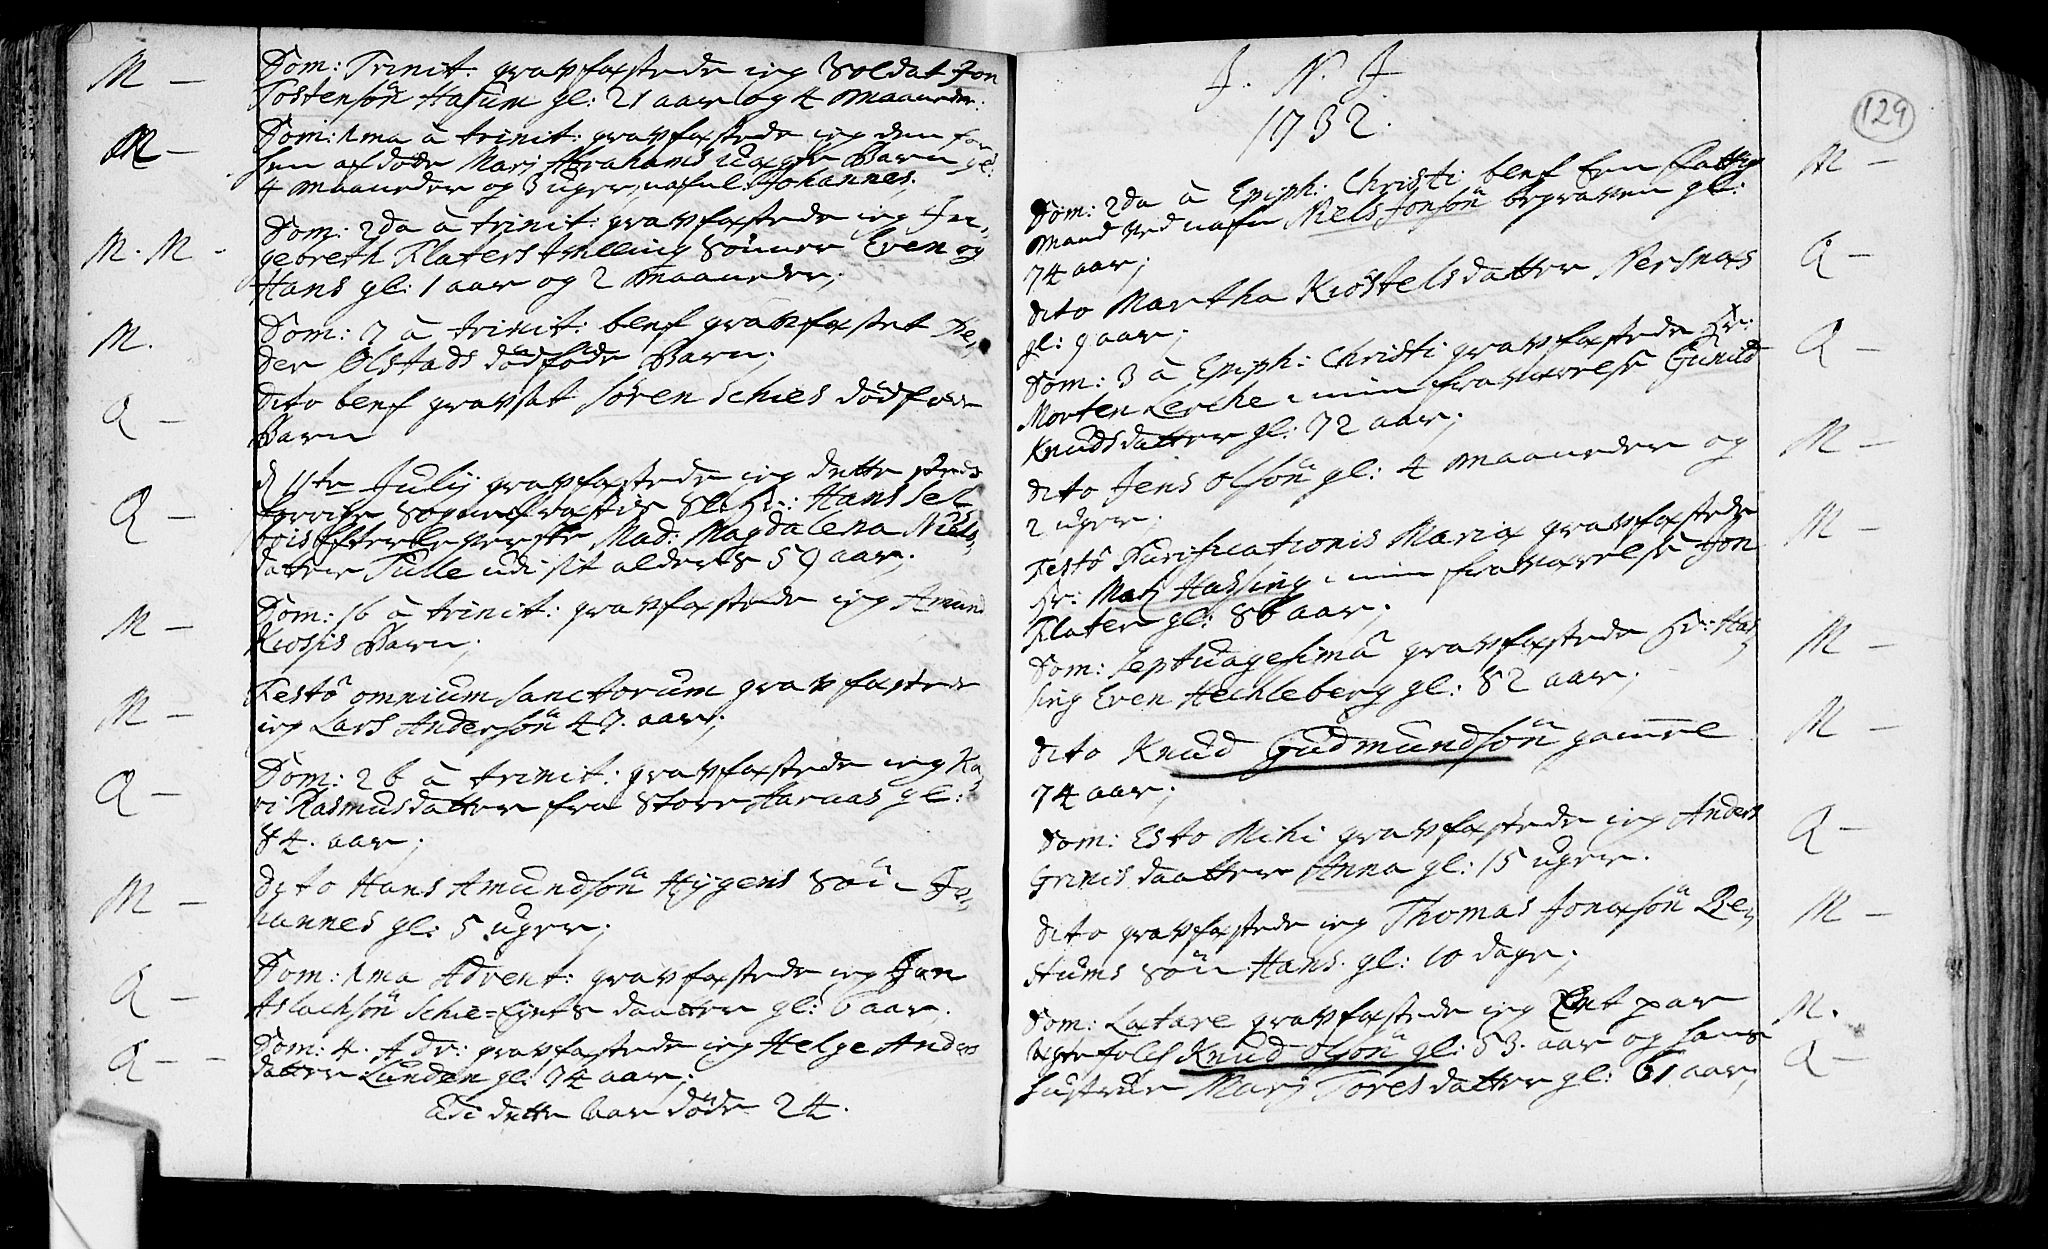 M - Dom: Trinit: gravfæstede ieg Soldat Jon
Tostensön Hasum gl: 21 aar og 4 Maaneder.
M - Dom: 1ma à trinit: gravfæstede ieg den
afdöde Marj Abrahams Barn gl:
4 Maaneder og 3 uger, nafnl: Johannes.
M. M - Dom: 2da à trinit: gravfæstede ieg In-
gebreth Flaters tvilling Sönner Even og
Hans gl: 1 aar og 2 Maaneder;
M. Dom: 7 à trinit: blef gravfæstet Pe-
der Olstads dödföde Barn;
Q - dito blef gravsat Sören Schies dödföde
Barn
Q - d 11te Julij gravfæstede ieg dette Steds
Sl: Hr: Hans
Efterleverske Mad: Magdalena Niels-
datter Tulle udi sit alders 59 aar;
M - Dom: 16 à trinit: gravfæstede ieg Amund
Kiosiis Barn;
M - Festô omnium Sanctorum gravfæstede
ieg Lars Andersön 47. aar;
Q - Dom: 26 à trinit: gravfæstede ieg Ka-
ri Rasmusdatter fra Store Aarnas gl:
84. aar;
M - dito Hans Amundsön Hÿgens Sön Jo-
hannes gl: 5 uger;
Q - Dom: 1ma Advent: gravfæstede ieg Jon
Aslachsön Schie=Eÿets daatter gl: 6 aar.
Q - - Dom: 4. Adv: gravfæstede ieg Helge Anders
datter Lunden gl: 74 aar;
Udi dette Aar döde 24.
J. N. J
1732.
129
Dom: 2da à Epiph: Christi blef Een fattig M -
Mand ved nafn Niels Jonsön begraven gl:
74 aar;
dito Martha Kiöstelsdatter Nersnæs Q -
gl: 9 aar;
Dom: 3 à Epiph: Christi gravfæstede Hr: Q -
Morten Lerche i min fraværelse Gunild
Knudsdatter gl: 72 aar;
dito Jens Olsön gl: 4 Maaneder og M -
2 uger;
Festô Purificationis Mariæ gravfæstede M -
Hr: Matz Hassing i min fraværelse Jon
Flaten gl: 86 aar;
Dom: Septuagesimâ gravfæstede Hr: Has- M -
sing Even Hechleberg gl: 82 aar;
dito Knud Gudmundsön gamel M -
74 aar;
Dom: Esto Mihi gravfæstede ieg Anders Q -
Grinis daatter Anna gl: 15 uger.
dito gravfæstede ieg Thomas Jonæsön Be- M -
stums Sön Hans. gl: 10 dage;
Dom: Lætare gravfæstede ieg Eet par M.
ægtefolch Knud Olsön gl: 53. aar og hans
Hustrue Marj Toresdatter gl: 61 aar; Q -